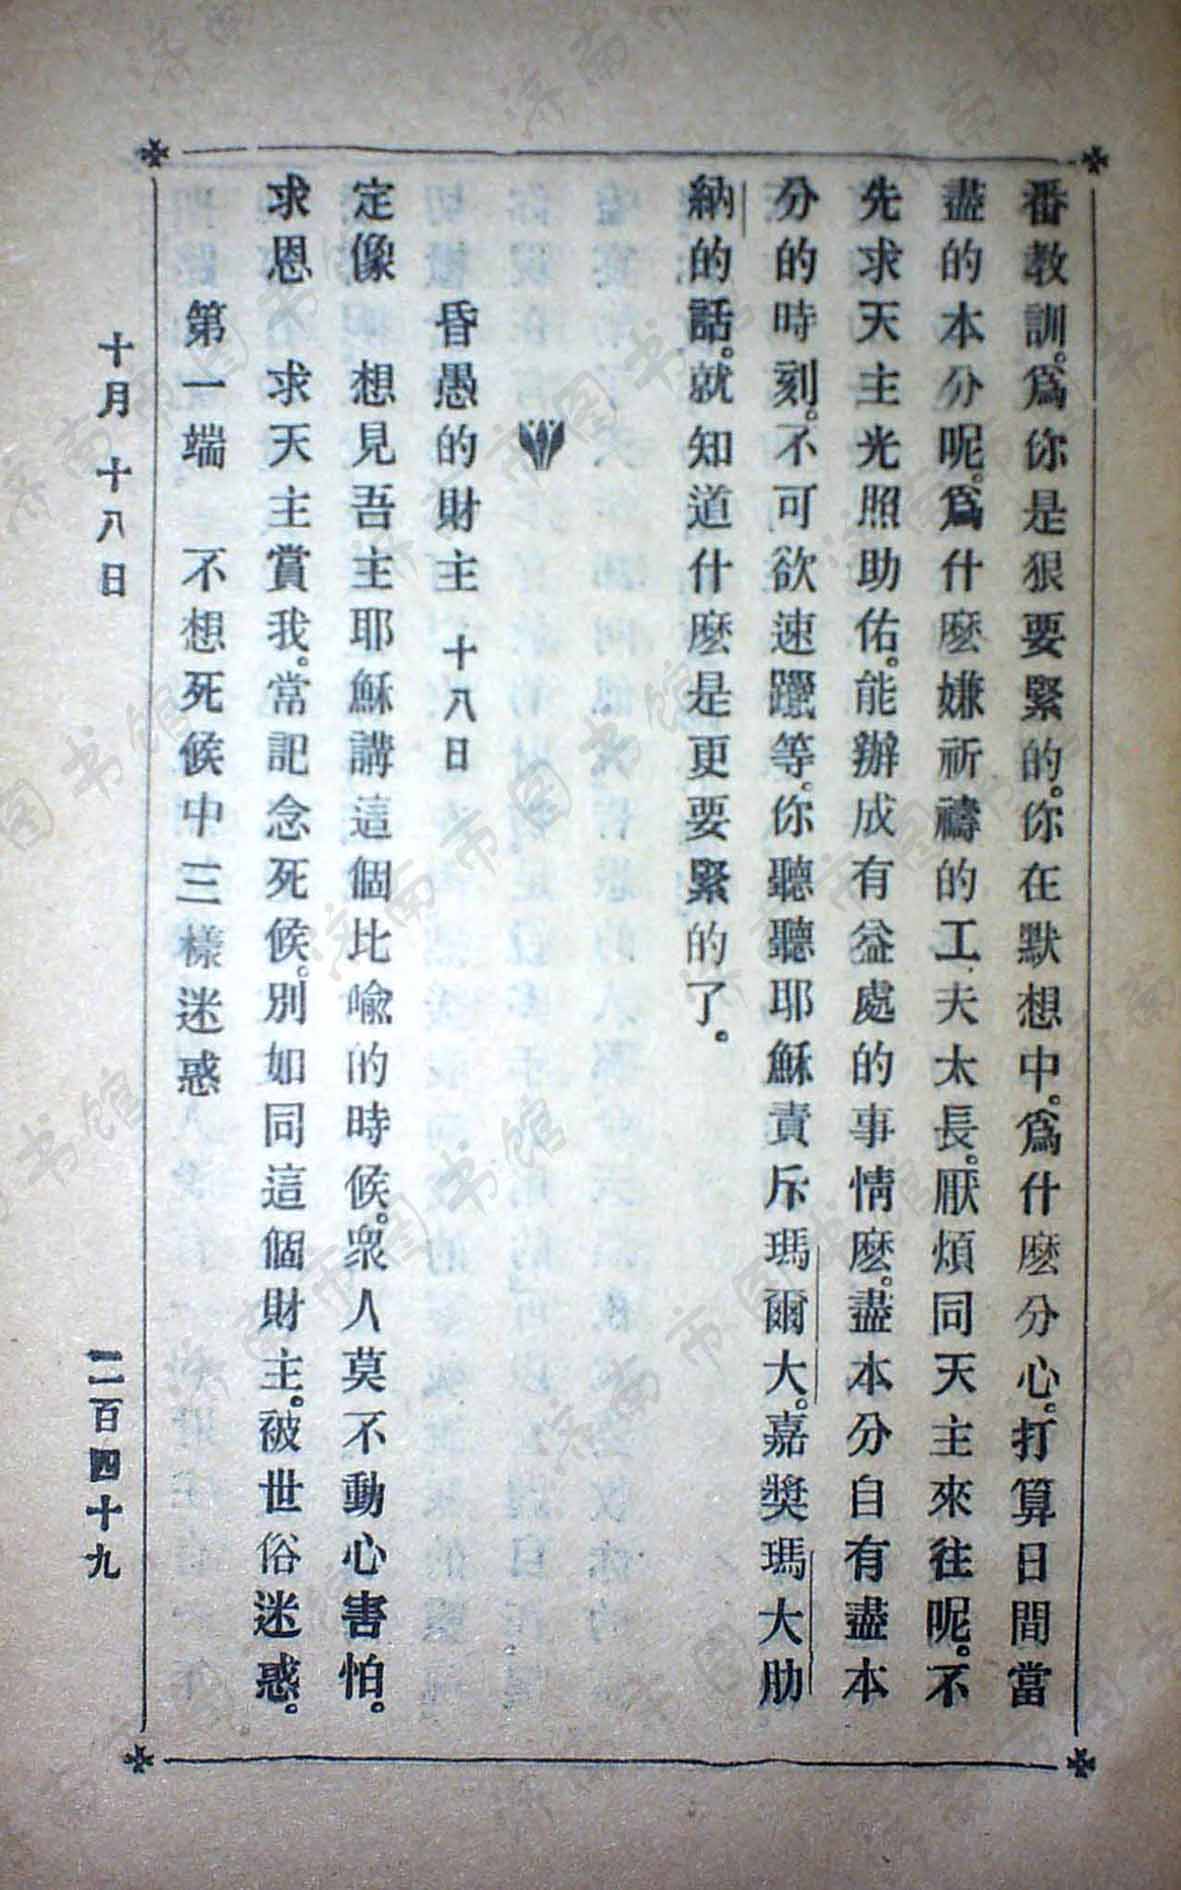 番教訓。爲你是狠要緊的。你在默想中。爲什麽分心。打算日間當
盡的本分呢。爲什麽嫌祈禱的工夫太長。厭煩同天主來往呢。不
先求天主光照助佑。能辦成有益處的事情麽。盡本分自有盡本
分的時刻。不可欲速躐等。你聽聽耶穌責斥瑪爾大。嘉奬瑪大肋
納的話。就知道什麽是更要緊的了。
昏愚的財主 十八日
定像 想見吾主耶穌講這個比喩的時候。衆人莫不動心害怕。
求恩 求天主賞我。常記念死候。別如同這個財主。被世俗迷惑。
第一端 不想死候中三樣迷惑
十月十八日 二百四十九
济南市图书馆